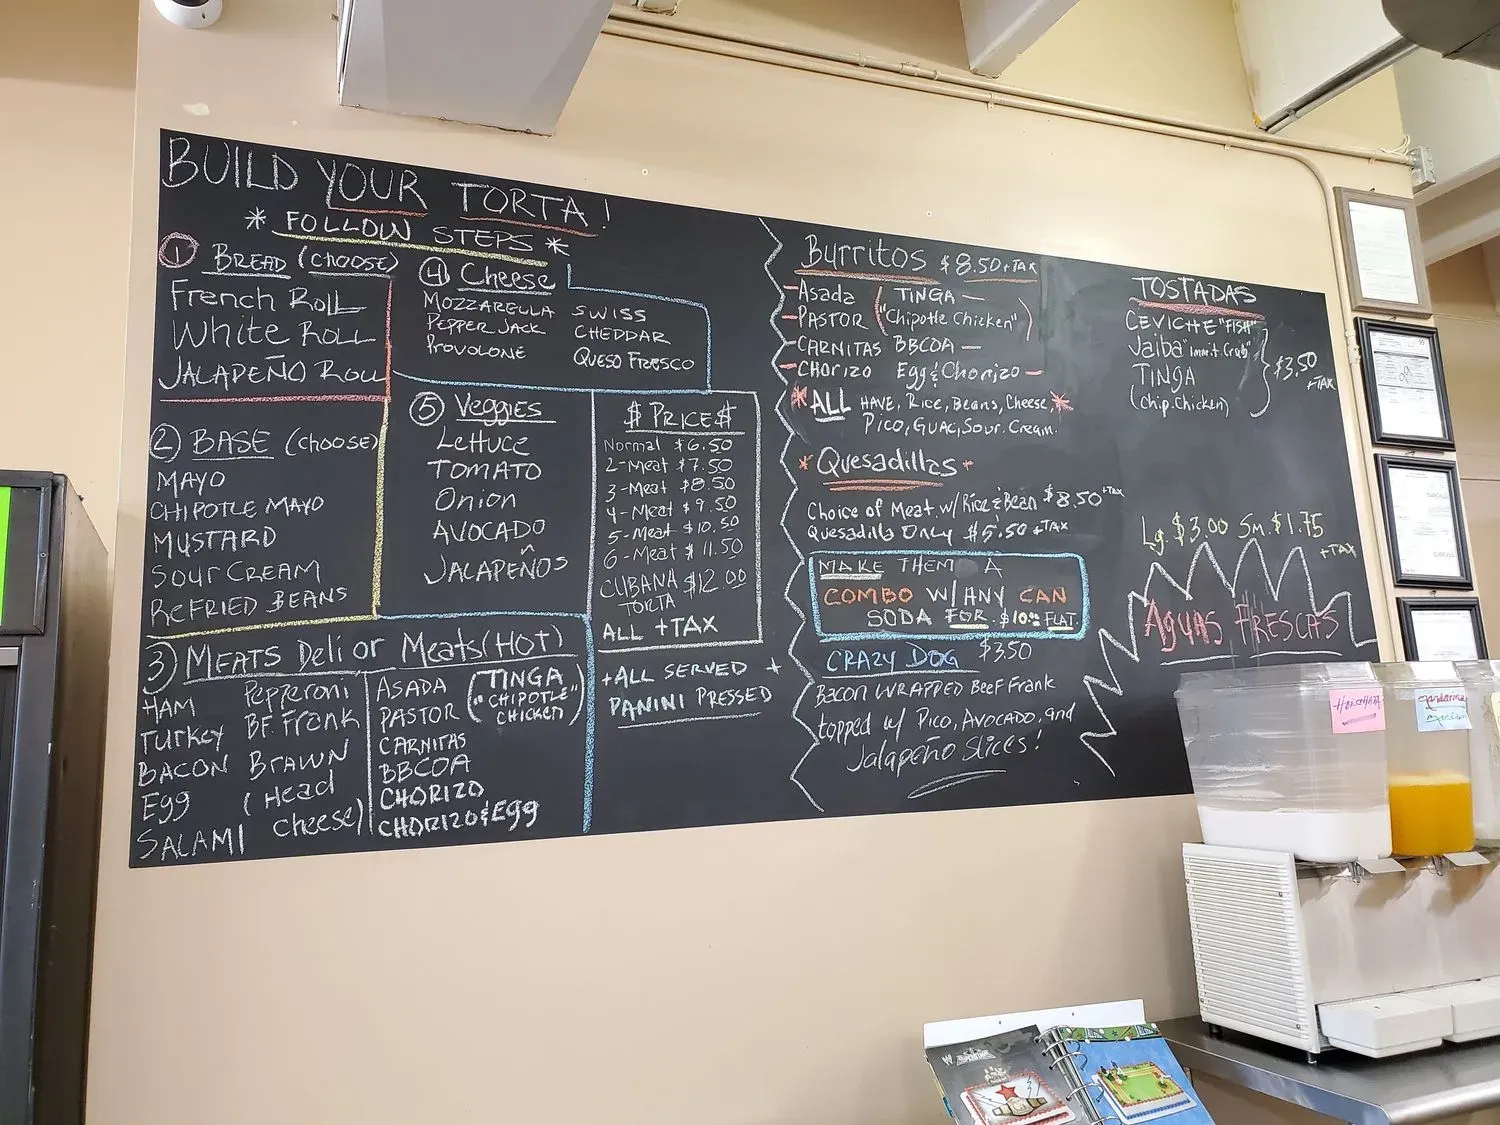 BUILD YOUR TORTA!
* FOLLOW STEPS *
1 BREAD (CHOOSE)
French Roll
White Roll
JALAPEÑO Roll
2 BASE (CHOOSE)
MAYO
CHIPOTLE MAYO
MUSTARD
SOUR CREAM
ReFRIED BEANS
3) MEATS Deli or Meats (HOT)
HAM
Turkey
BACON
Egg
SALAMI
Pepperoni
BF. Frank
BRAWN
(Head
cheese)
ASADA
PASTOR
CARNITAS
BBCOA
CHORIZO
CHORIZO & Egg
(TINGA
"CHIPOTLE"
CHICKEN)
4 Cheese
MOZZARELLA
PEPPER JACK
PROVOLONE
SWISS
CHEDDAR
QUESO FRESCO
5 Veggies
LETTUCE
TOMATO
Onion
AVOCADO
JALAPEÑOS
$ PRICE $
Normal $6.50
2-Meat $7.50
3-Meat $8.50
4-Meat $9.50
5-Meat $10.50
6-Meat $11.50
CUBANA $12.00
TORTA
ALL +TAX
+ALL SERVED +
PANINI PRESSED
Burritos $8.50+TAX
- Asada (TINGA -
- PASTOR "Chipotle Chicken")
- CARNITAS BBCOA -
- CHORIZO Egg & Chorizo -
* ALL HAVE, Rice, Beans, Cheese, *
Pico, Guac, Sour Cream.
* Quesadillas *
Choice of Meat w/ Rice & Bean $8.50 +TAX
Quesadilla Only $5.50 +TAX
MAKE THEM A
COMBO W/ ANY CAN
SODA FOR $10.00 FLAT.
CRAZY DOG $3.50
BACON WRAPPED Beef Frank
topped w/ Pico, Avocado, and
Jalapeño Slices!
TOSTADAS
CEVICHE "FISH"
Jaiba "Immit. Crab"
TINGA
(Chip. Chicken)
$3.50
+TAX
Lg. $3.00 Sm. $1.75
+TAX
Aguas FRESCAS
HORCHATA